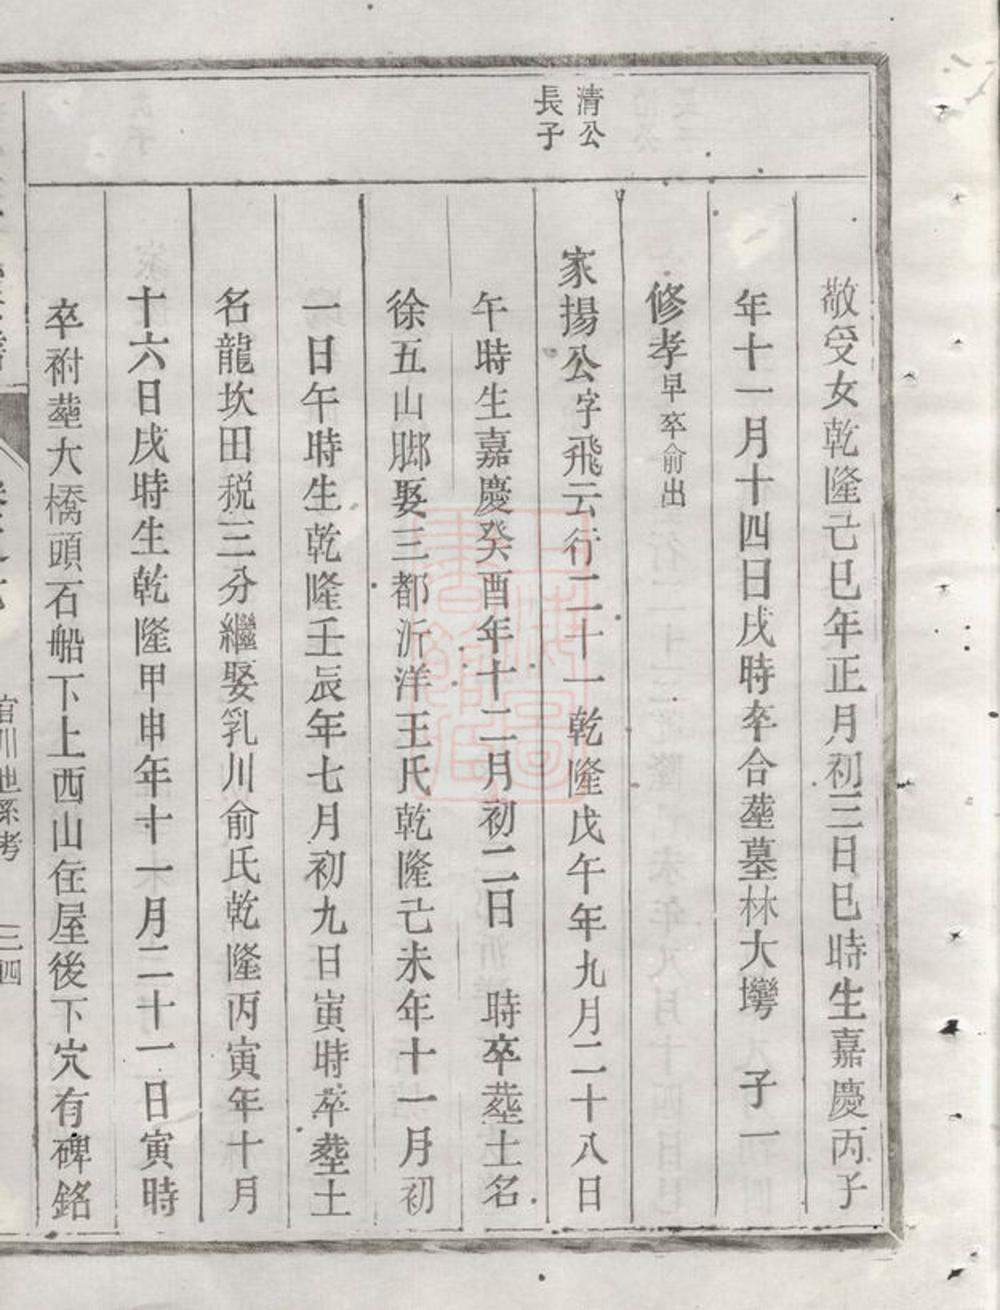 清公
長子
敬受女乾隆己巳年正月初三日巳時生嘉慶丙子
年十一月十四日戌時卒合塟墓林大塆　子一
修孝早卒俞出
家揚公字飛云行二十一乾隆戊午年九月二十八日
午時生嘉慶癸酉年十二月初二日　時卒塟土名
徐五山脚娶三都沂洋王氏乾隆己未年十一月初
一日午時生乾隆壬辰年七月初九日寅時卒塟土
名龍坎田税三分繼娶乳川俞氏乾隆丙寅年十月
十六日戌時生乾隆甲申年十一月二十一日寅時
卒祔塟大橋頭石船下上西山住屋後下穴有碑銘
官川世系考
三四